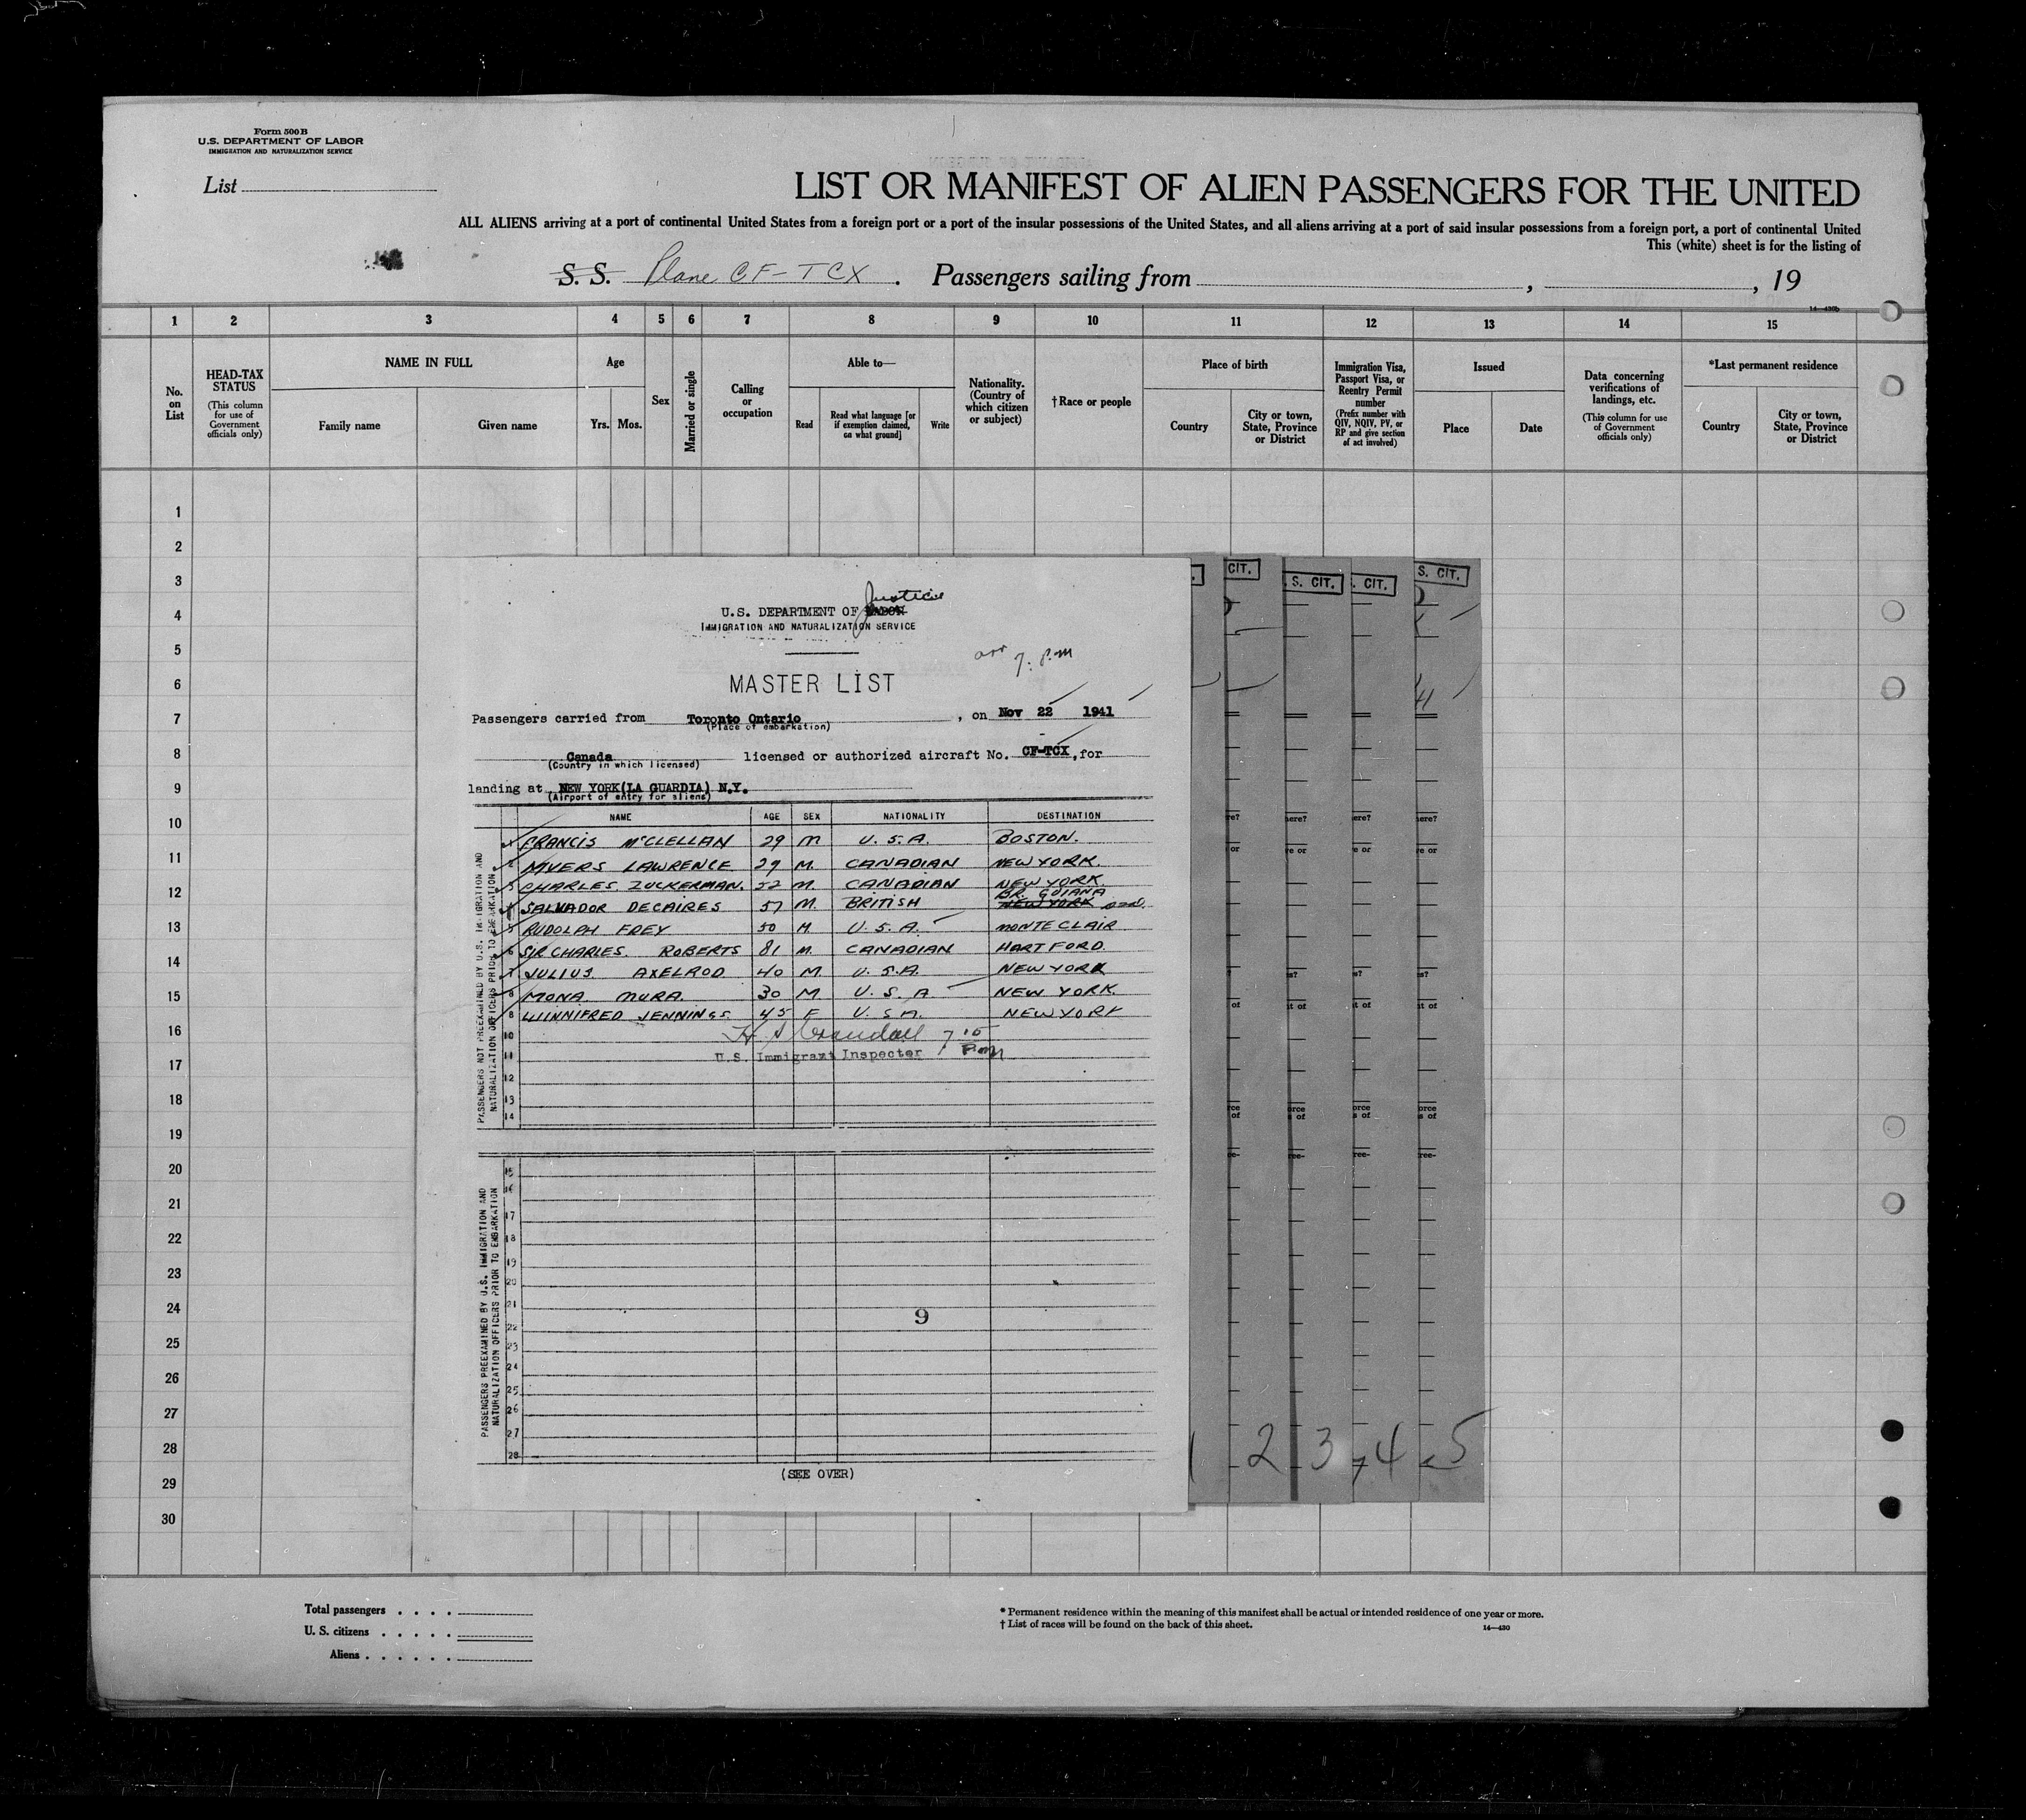 Form 500B
U.S. DEPARTMENT OF LABOR
IMMIGRATION AND NATURALIZATION SERVICE
List
LIST OR MANIFEST OF ALIEN PASSENGERS FOR THE UNITED
ALL ALIENS arriving at a port of continental United States from a foreign port or a port of the insular possessions of the United States, and all aliens arriving at a port of said insular possessions from a foreign port, a port of continental United
This (white) sheet is for the listing of
S. S. Plane CF-TCX . Passengers sailing from , , 19
14—430b
1 2 3 4 5 6 7 8 9 10 11 12 13 14 15
No. on List
HEAD-TAX STATUS
(This column for use of Government officials only)
NAME IN FULL
Family name
Given name
Age
Yrs. Mos.
Sex
Married or single
Calling or occupation
Able to—
Read
Read what language [or if exemption claimed, on what ground]
Write
Nationality. (Country of which citizen or subject)
†Race or people
Place of birth
Country
City or town, State, Province or District
Immigration Visa, Passport Visa, or Reentry Permit number
(Prefix number with QIV, NQIV, PV, or RP and give section of act involved)
Issued
Place
Date
Data concerning verifications of landings, etc.
(This column for use of Government officials only)
*Last permanent residence
Country
City or town, State, Province or District
1
2
3
4
5
6
7
8
9
10
11
12
13
14
15
16
17
18
19
20
21
22
23
24
25
26
27
28
29
30
U.S. DEPARTMENT OF LABOR Justice
IMMIGRATION AND NATURALIZATION SERVICE
arr 7: P.M
MASTER LIST
Passengers carried from Toronto Ontario , on Nov 22 1941
(Place of embarkation)
Canada licensed or authorized aircraft No. CF-TCX, for
(Country in which licensed)
landing at NEW YORK(LA GUARDIA) N.Y.
(Airport of entry for aliens)
NAME AGE SEX NATIONALITY DESTINATION
PASSENGERS NOT PREEXAMINED BY U.S. IMMIGRATION AND NATURALIZATION OFFICERS PRIOR TO EMBARKATION
1 FRANCIS McCLELLAN 29 M U.S.A. BOSTON.
2 MYERS LAWRENCE 29 M. CANADIAN NEW YORK.
3 CHARLES ZUCKERMAN. 52 M. CANADIAN NEW YORK.
BR. GUIANA
4 SALVADOR DECAIRES 57 M. BRITISH NEW YORK
5 RUDOLPH FREY 50 M. U.S.A. MONTECLAIR
6 SIR CHARLES ROBERTS 81 M. CANADIAN HARTFORD.
7 JULIUS AXELROD 40 M U.S.A. NEW YORK
8 MONA MURA. 30 M U.S.A NEW YORK.
8 WINNIFRED JENNINGS 45 F U.S.A. NEW YORK
10 H S Crandall 7 10 P.m
11 U.S. Immigrant Inspector
12
13
14
PASSENGERS PREEXAMINED BY U.S. IMMIGRATION AND NATURALIZATION OFFICERS PRIOR TO EMBARKATION
15
16
17
18
19
20
21
9
22
23
24
25
26
27
28
(SEE OVER)
CIT.
S. CIT.
. CIT.
S. CIT.
re? here? here? here?
or re or re or re or
? s? s? s?
of it of it of it of
rce of orce s of orce s of orce s of
ee- ree- ree- ree-
2 3 4 5
Total passengers . . . .
U. S. citizens . . . . .
Aliens . . . . . .
* Permanent residence within the meaning of this manifest shall be actual or intended residence of one year or more.
† List of races will be found on the back of this sheet.
14—430